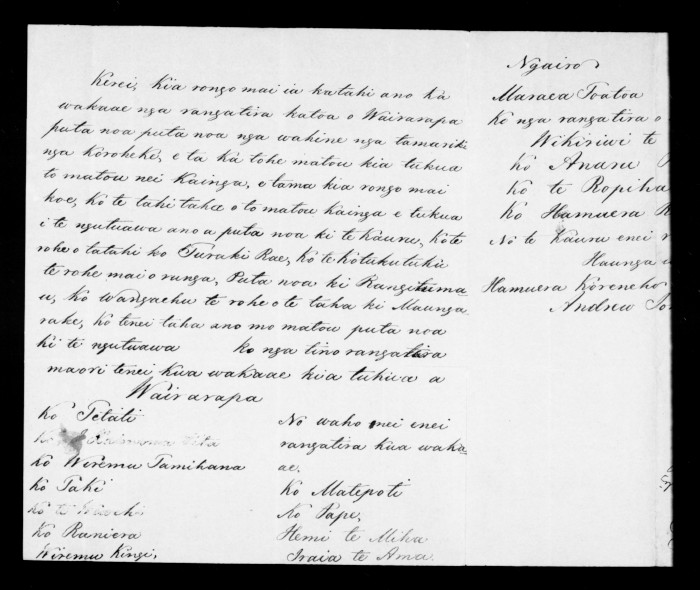 Kerei, kia rongo mai ia katahi ano ka
wakaae nga rangatira katoa o Wairarapa
puta noa puta noa nga wahine nga tamariki
nga korokeke, e ta ka tohe matou kia tukua
to matou nei kainga, e tama kia rongo mai
koe, ko te tahi taha o to matou kainga e tukua
i te ngutuawa ano a puta noa ki te kauru, ko te
rohe o tatahi ko Turaki Rae, ko te kotukutuku
te rohe mai o runga, Puta noa ki Rangituma
u, ko wangaehu te rohe o te taha ki Maunga
rake, ko tenei taha ano mo matou puta noa
ki te ngutuawa ko nga tino rangatira
maori tenei kua wakaae kia tukua a
Wairarapa
Ko Tetati
Ko
Ko Wiremu Tamihana
Ko Taki
Ko te
Ko Raniera
Wiremu Kingi,
No waho mei enei
rangatira kua waka
ae.
Ko Matepoti
No Pape,
Hemi te Miha
Iraia te Ama
Ngairo
Maraea Toatoa
Ko nga rangatira o
Wikiriwi te
Ko Anaru
Ko te Ropiha
Ko Hamuera
No te Kauru enei
Haunga
Hamuera Koreneho
Andrew